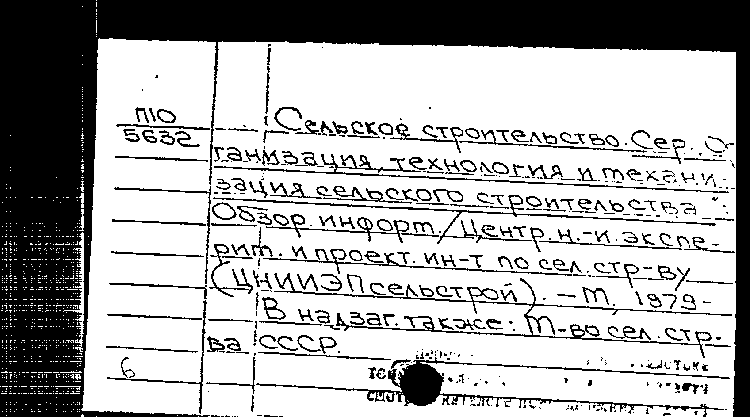 П10
5632
Сельское строительство. Сер. „О-
ганизация, технология и механи-
зация сельского строительства":
Обзор. информ. / Центр. н.-и. экспе-
рим. и проект. ин-т по сел. стр-ву
(ЦНИИЭПсельстрой). – М., 1979-
В надзаг. также: М-во сел. стр-
ва СССР.
6